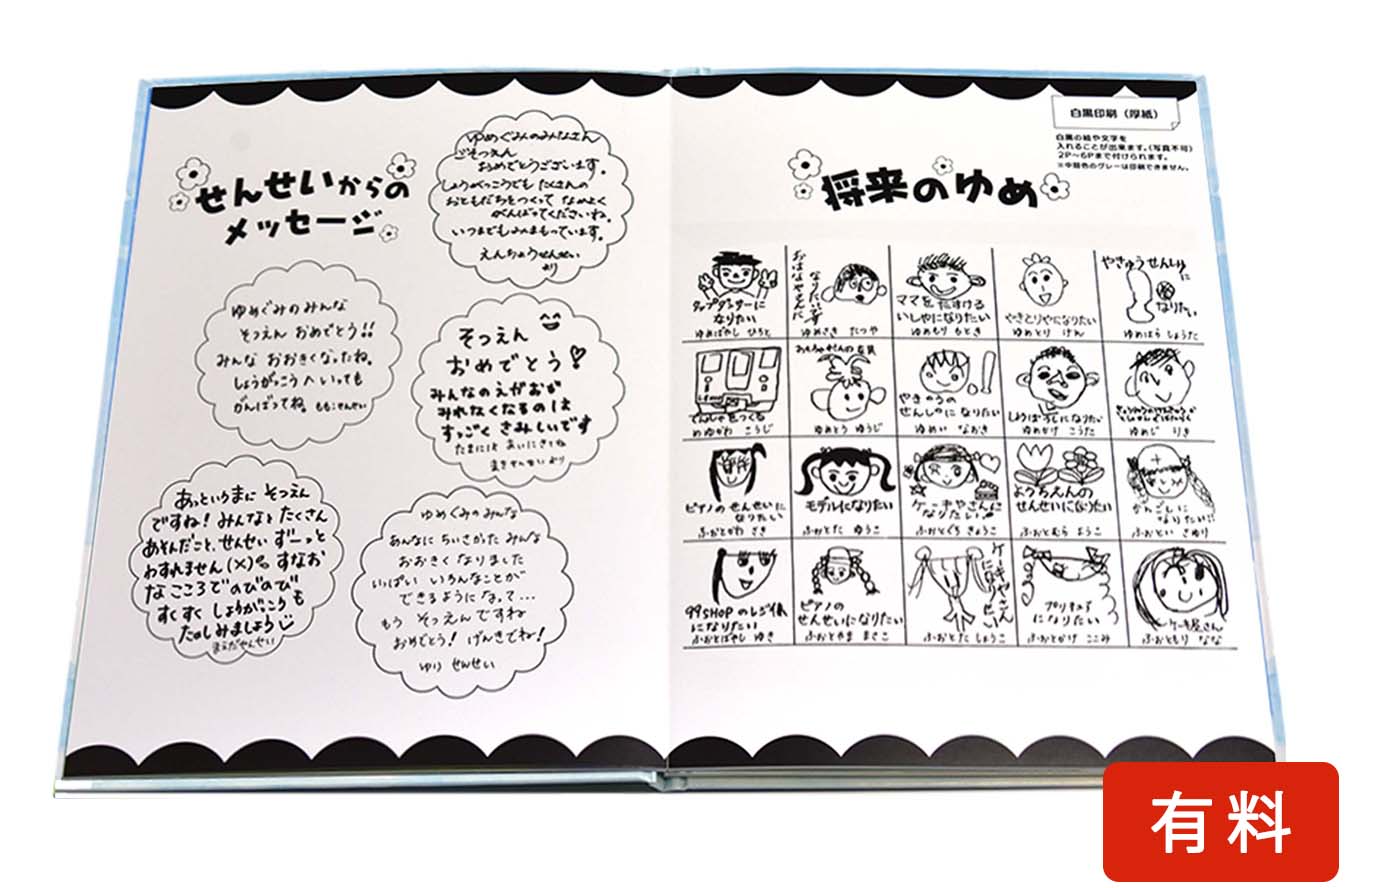 せんせいからの
メッセージ
ゆめぐみのみなさん
ごそつえん
おめでとうございます。
しょうがっこうでも たくさんの
おともだちをつくって なかよく
がんばってくださいね。
いつまでもみまもっています。
えんちょうせんせい
より
ゆめぐみのみんな
そつえん おめでとう!!
みんな おおきくなったね。
しょうがっこうへいっても
がんばってね。ももこせんせい
そつえん
おめでとう!
みんなのえがおが
みれなくなるのは
すっごく さみしいです
たまには あいにきてね
まきせんせいより
あっというまに そつえん
ですね!みんなと たくさん
あそんだこと、せんせい ずーっと
わすれません(×)。すなお
な こころで のびのび
すくすく しょうがっこうも
たのしみましょう
まえだせんせい
ゆめぐみのみんな
あんなに ちいさかった みんな
おおきく なりました
いっぱい いろんなことが
できるように なって...
もう そつえんですね
おめでとう!げんきでね!
ゆり せんせい
白黒印刷(厚紙)
白黒の絵や文字を
入れることが出来ます。(写真不可)
2P〜6Pまで付けられます。
※中間色のグレーは印刷できません。
将来のゆめ
タップダンサーに
なりたい
ゆめばやし ひろと
おはなやさんに
なりたいです
ゆめさき たつや
ママをたすける
いしゃになりたい
ゆめもり もとき
やきとりやになりたい
ゆめとり けん
やきゅうせんしゅに
なりたい
ゆめはら しょうた
でんしゃをつくる
ゆめがわ こうじ
おもちゃやさんの店員
ゆめとう ゆうじ
やきゅうの
せんしゅになりたい
ゆめい なおき
しょうぼうしになりたい
ゆめかげ こうた
ゆめじ りき
ピアノのせんせいに
なりたい
ふおとがわ さき
モデルになりたい
ふおとだ ゆうこ
ケーキやさんに
なりたい
ふおとくら きょうこ
ようちえんの
せんせいになりたい
ふおとむら ようこ
かんごしに
なりたい
ふおとい さゆり
99SHOPのレジ係
になりたい
ふおとばやし ゆき
ピアノの
せんせいになりたい
ふおとやま まさこ
ケーキやさん
になりたい
ふおとた しょうこ
プリキュア
になりたい
ふおとかげ ここみ
ケーキ屋さん
ふおともり なな
有料